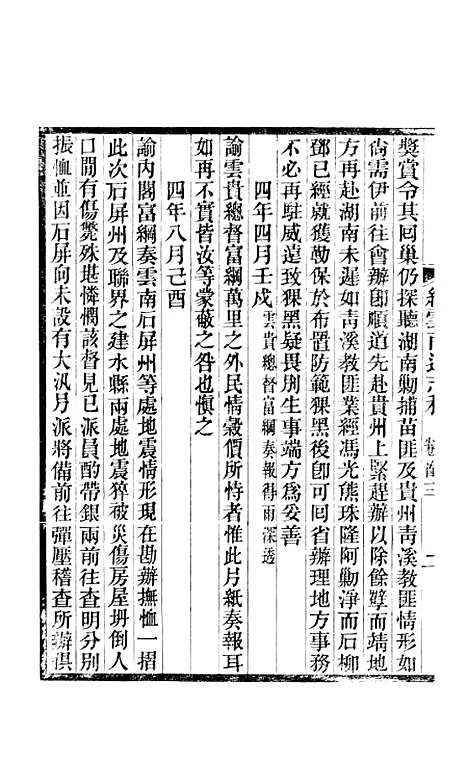 續雲南通志稿 卷首三 二
獎賞令其回巢仍探聽湖南勦捕苗匪及貴州靑溪教匪情形如
尙需伊前往會辦卽順道先赴貴州上緊趕辦以除餘孽而靖地
方再赴湖南未遲如靑溪教匪業經馮光熊珠隆阿勦淨而石柳
鄧已經就獲勒保於布置防範猓黑後卽可回省辦理地方事務
不必再駐威遠致猓黑疑畏別生事端方爲妥善
四年四月壬戌雲貴總督富綱奏報得雨深透
諭雲貴總督富綱萬里之外民情穀價所恃者惟此片紙奏報耳
如再不實皆汝等蒙蔽之咎也愼之
四年八月己酉
諭內閣富綱奏雲南石屏州等處地震情形現在勘辦撫恤一摺
此次石屏州及聯界之建水縣兩處地震猝被災傷房屋坍倒人
口閒有傷斃殊堪憐憫該督見已派員酌帶銀兩前往查明分別
振恤並因石屏向未設有大汛另派將備前往彈壓稽查所辦俱